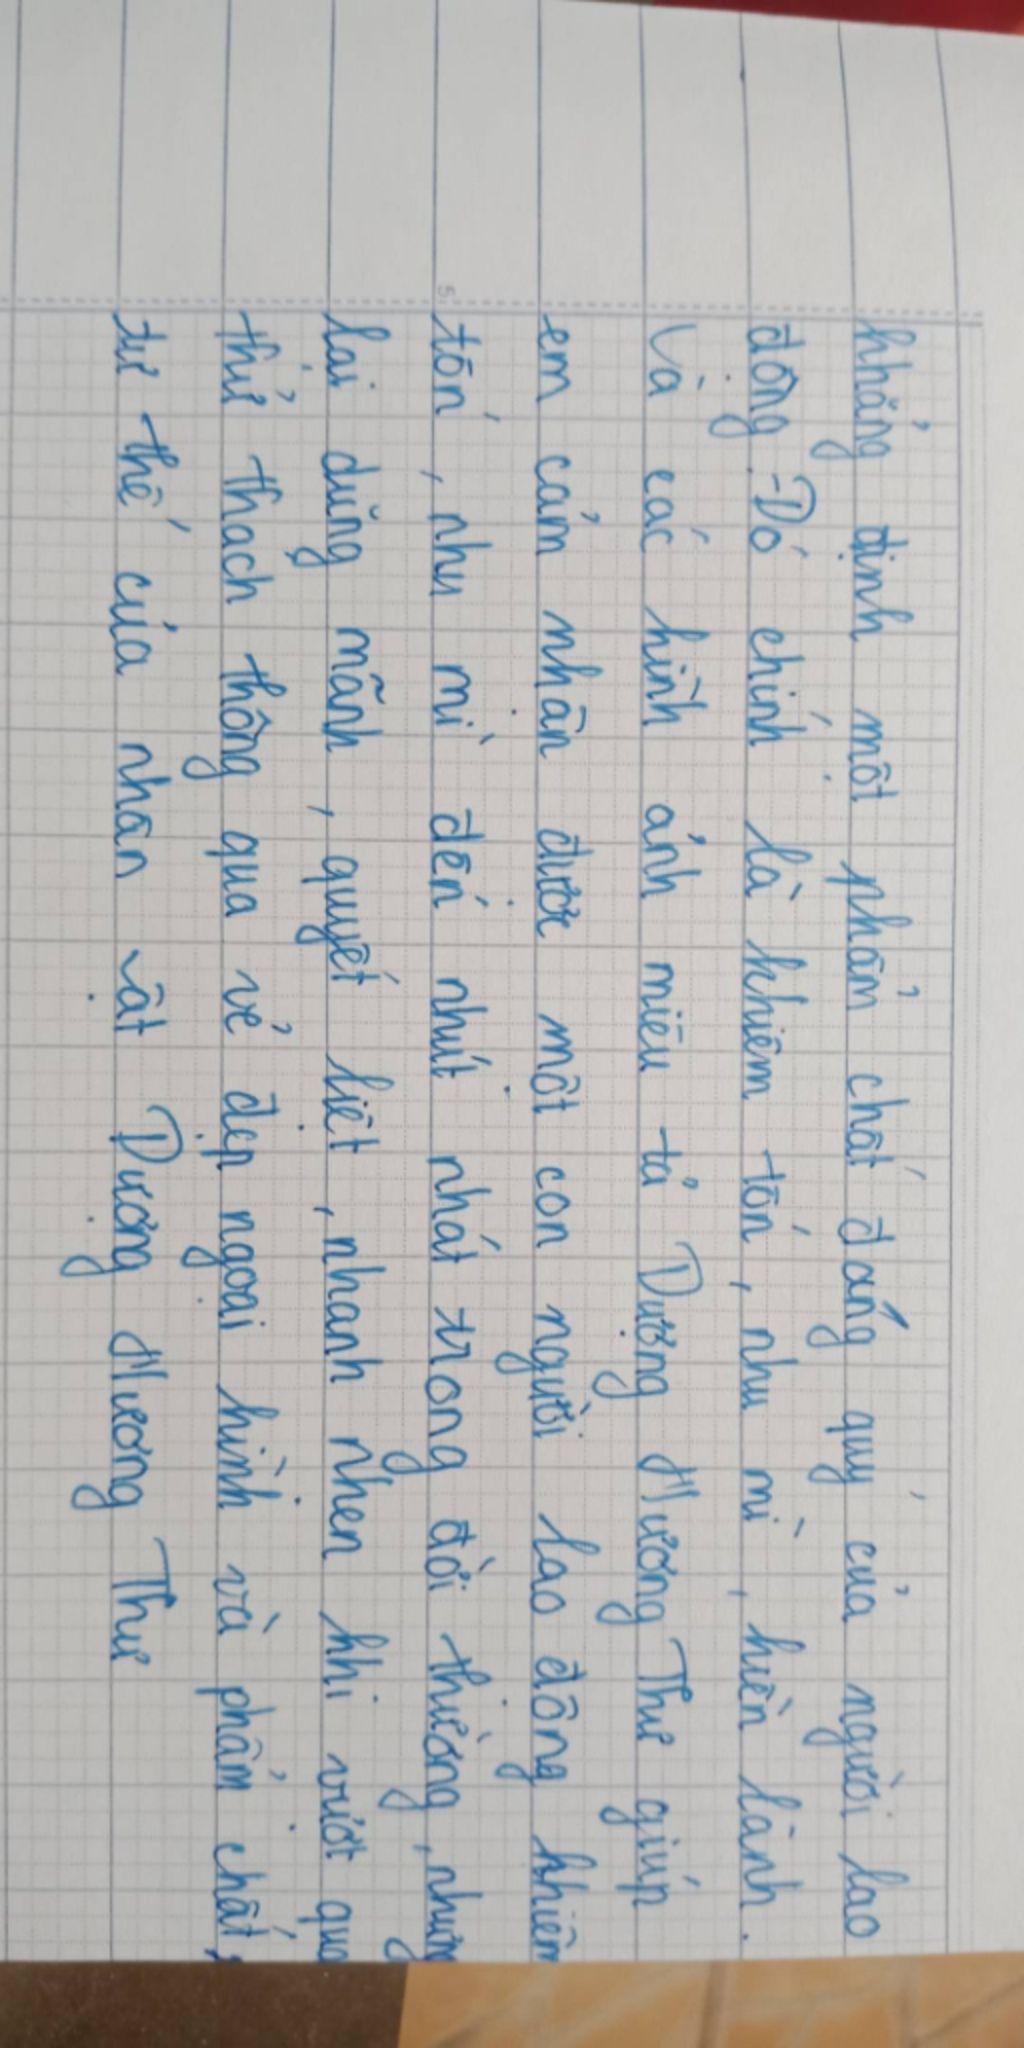 khẳng định một phẩm chất đáng quý của người lao
động. Đó chính là khiêm tốn, nhu mì, hiền lành.
Và các hình ảnh miêu tả Dượng Hương Thư giúp
em cảm nhận được một con người lao động khiêm
tốn, nhu mì đến nhút nhát trong đời thường, nhưng
lại dũng mãnh, quyết liệt, nhanh nhẹn khi vượt qua
thử thách thông qua vẻ đẹp ngoại hình và phẩm chất,
tư thế của nhân vật Dượng Hương Thư